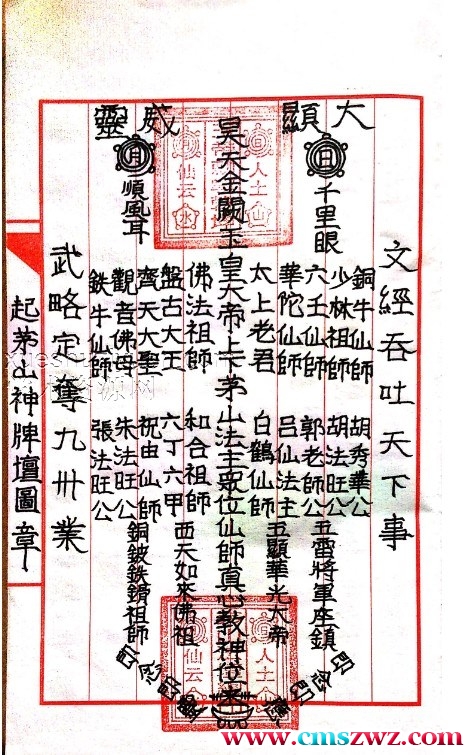 大顯威靈
日
千里眼
月
順風耳
文經吞吐天下事
銅牛仙師
胡秀華公
少林祖師
胡法旺公
五雷將軍座鎮
六壬仙師
郭老師公
華陀仙師
呂仙法主
五顯華光大帝
太上老君
白鶴仙師
昊天金闕玉皇大帝上下茅山法主眾位仙師真心教神位
佛法祖師
和合祖師
西天如來佛祖
盤古大王
六丁六甲
齊天大聖
祝由仙師
銅鈸鉄鑼祖師
觀音佛母
朱法旺公
鉄牛仙師
張法旺公
武略定奪九州業
起茅山神牌壇圖章
人土山
仙云水
人土山
仙云
www.cmszwz.com